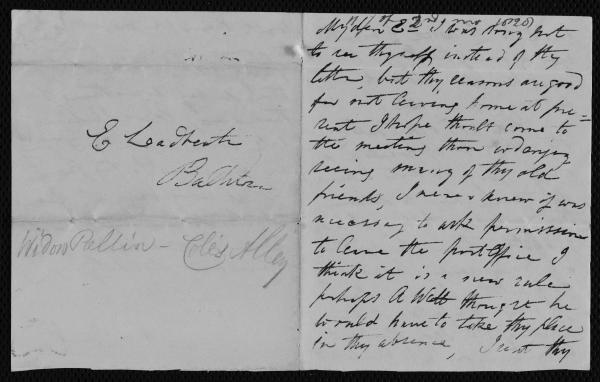 E Leadbeater
Ballitore
Widow Pallin - Coles Alley
My dear E 2nd of 9 mo 1826
I was sorry not
to see thyself instead of thy
letter, but thy reasons are good
for not leaving home at pre=
sent I hope thoult come to
the meeting thou wd enjoy
seeing many of thy old
friends, I never knew it was
necessary to ask permission
to leave the post Office I
think it is a new rule
perhaps A Watt thought he
would have to take thy place
in thy absence, I sent thy